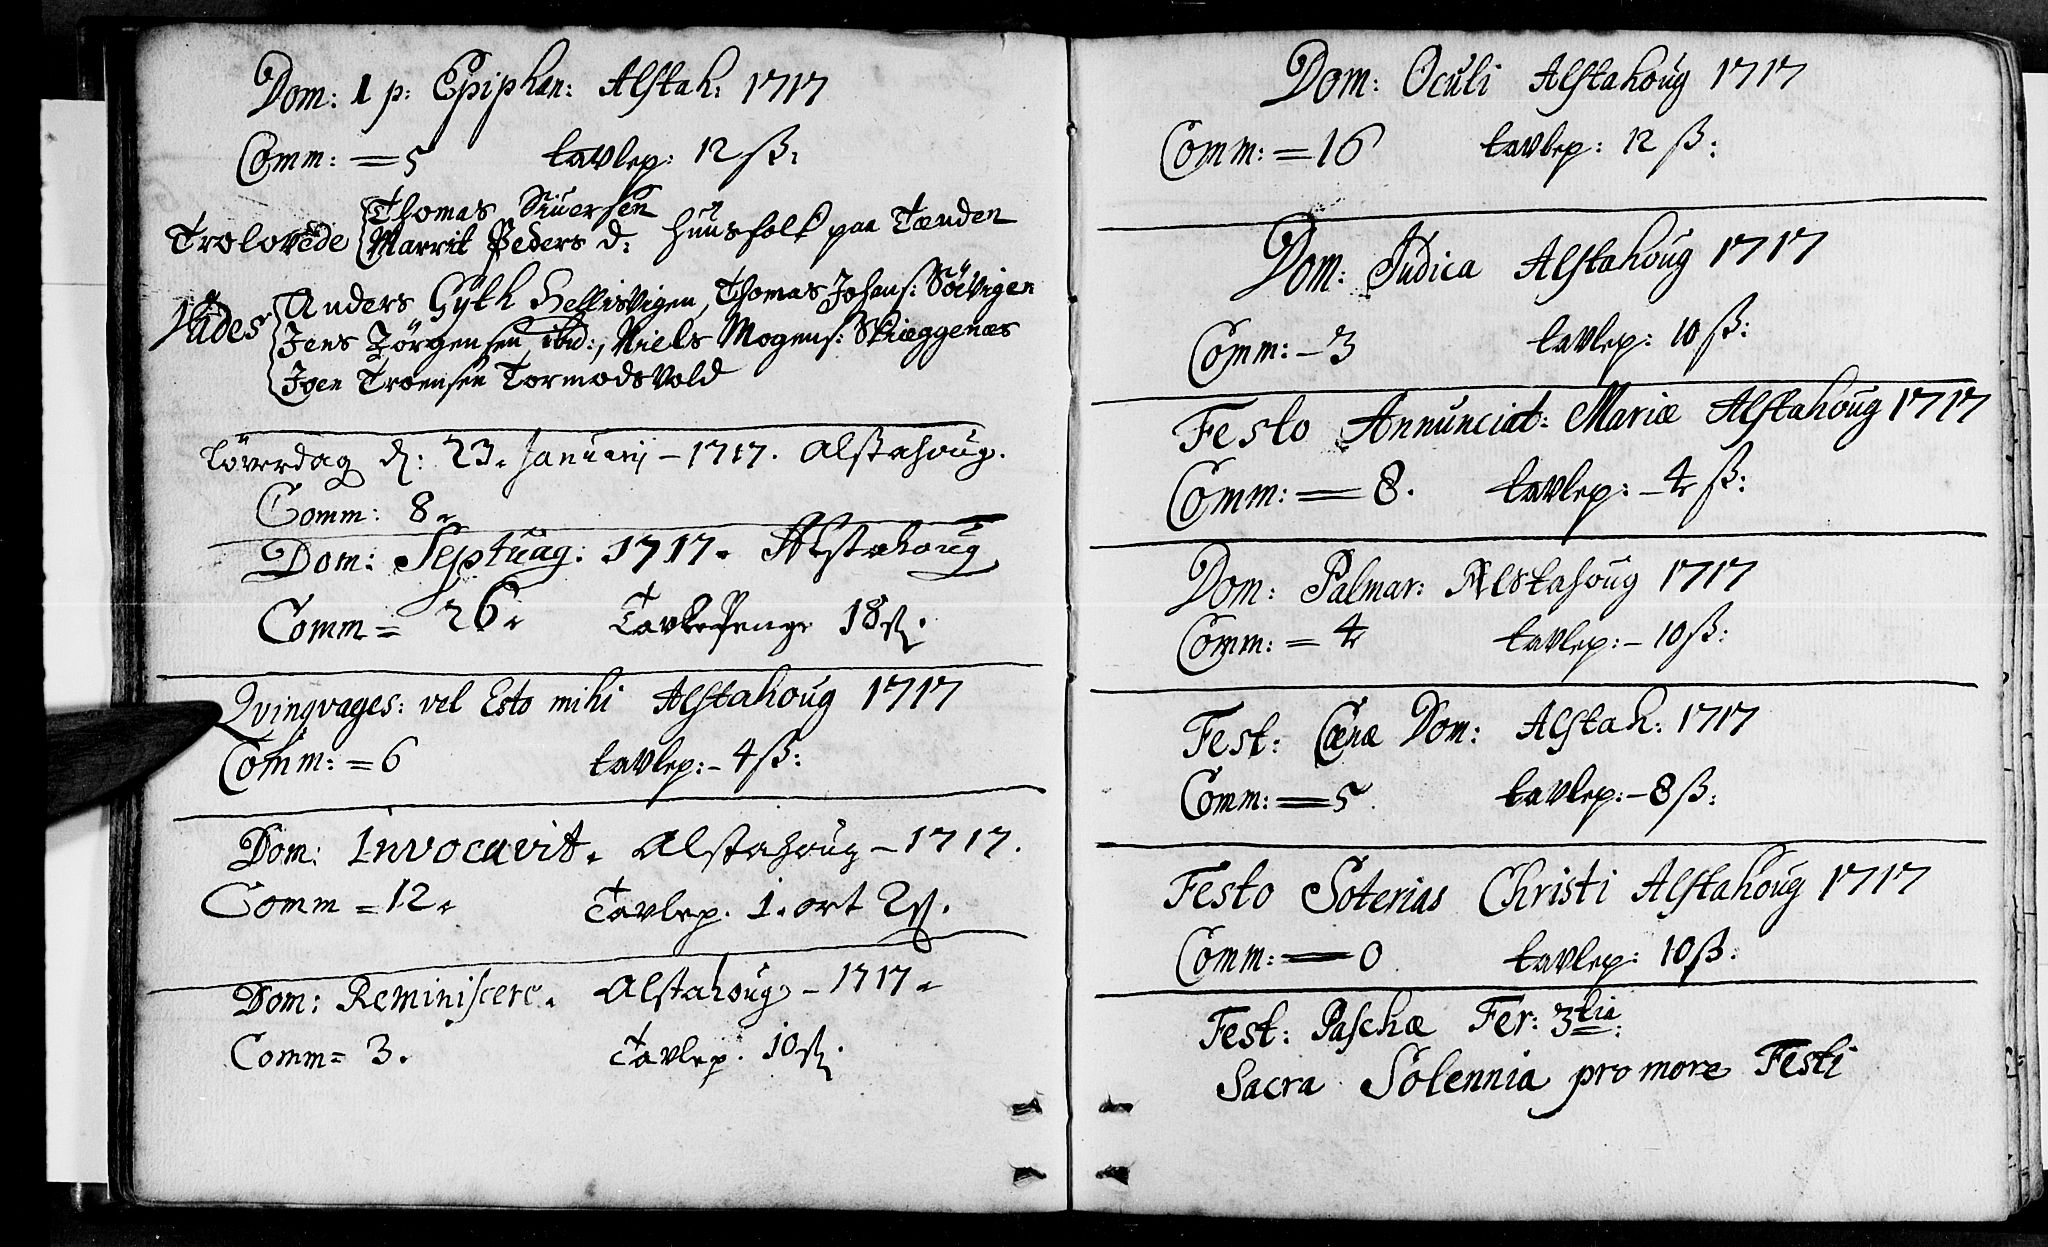 Dom: 1 p: Epiphan: Alstah: 1717
Comm: = 5 tavlep: 12 ß:
Trolovede Thomas Siuersen
Marrit Peders d: huusfolk paa Tænden
Vides Anders Gÿth Hellisvigen, Thomas Johans: Söevigen
Jens Jörgensen ibid:, Niels Mogens: Skiæggenæs
Joen Troensen Tormodsvold
Löverdag d: 23. Januarij - 1717. Alstahoug.
Comm: 8.
Dom: Septuag: 1717. Alstahoug
Comm = 26. TavlePenge 18 ß.
Qvinqvages: vel Esto mihi Alstahoug 1717
Comm: = 6 tavlep: - 4 ß:
Dom: Invocavit. Alstahoug - 1717.
Comm = 12. Tavlep. 1. ort 2 ß.
Dom: Reminiscere. Alstahoug - 1717.
Comm = 3. Tavlep. 10 ß.
Dom: Oculi Alstahoug 1717
Comm: = 16 tavlep: 12 ß:
Dom: Judica Alstahoug 1717
Comm: - 3 tavlep: 10 ß:
Festo Annunciat: Mariæ Alstahoug 1717
Comm: = 8. tavlep: - 4 ß:
Dom: Palmar: Alstahoug 1717
Comm: = 4 tavlep: - 10 ß:
Fest: Cœnæ Dom: Alstah: 1717
Comm: = 5. tavlep: - 8 ß:
Festo Soterias Christi Alstahoug 1717
Comm: = 0 tavlep: 10 ß:
Fest: Paschæ Fer: 3tia:
Sacra Solennia pro more Festi